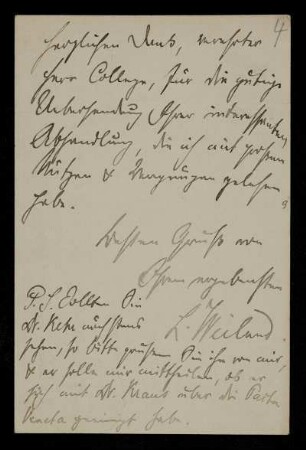 4
Herzlichen Dank, verehrter
Herr College, für die gütige
Uebersendung Ihrer interessanten
Abhandlung, die ich mit großem
Nutzen & Vergnügen gelesen
habe.
Besten Gruß von
Ihrem ergebensten
L. Weiland.
P. S. Sollten Sie
Dr. Kehr nächstens
sehen, so bitte grüßen Sie ihn von mir,
& er solle mir mittheilen, ob er
sich mit Dr. Kraus über die Pacta
Veneta geeinigt habe.